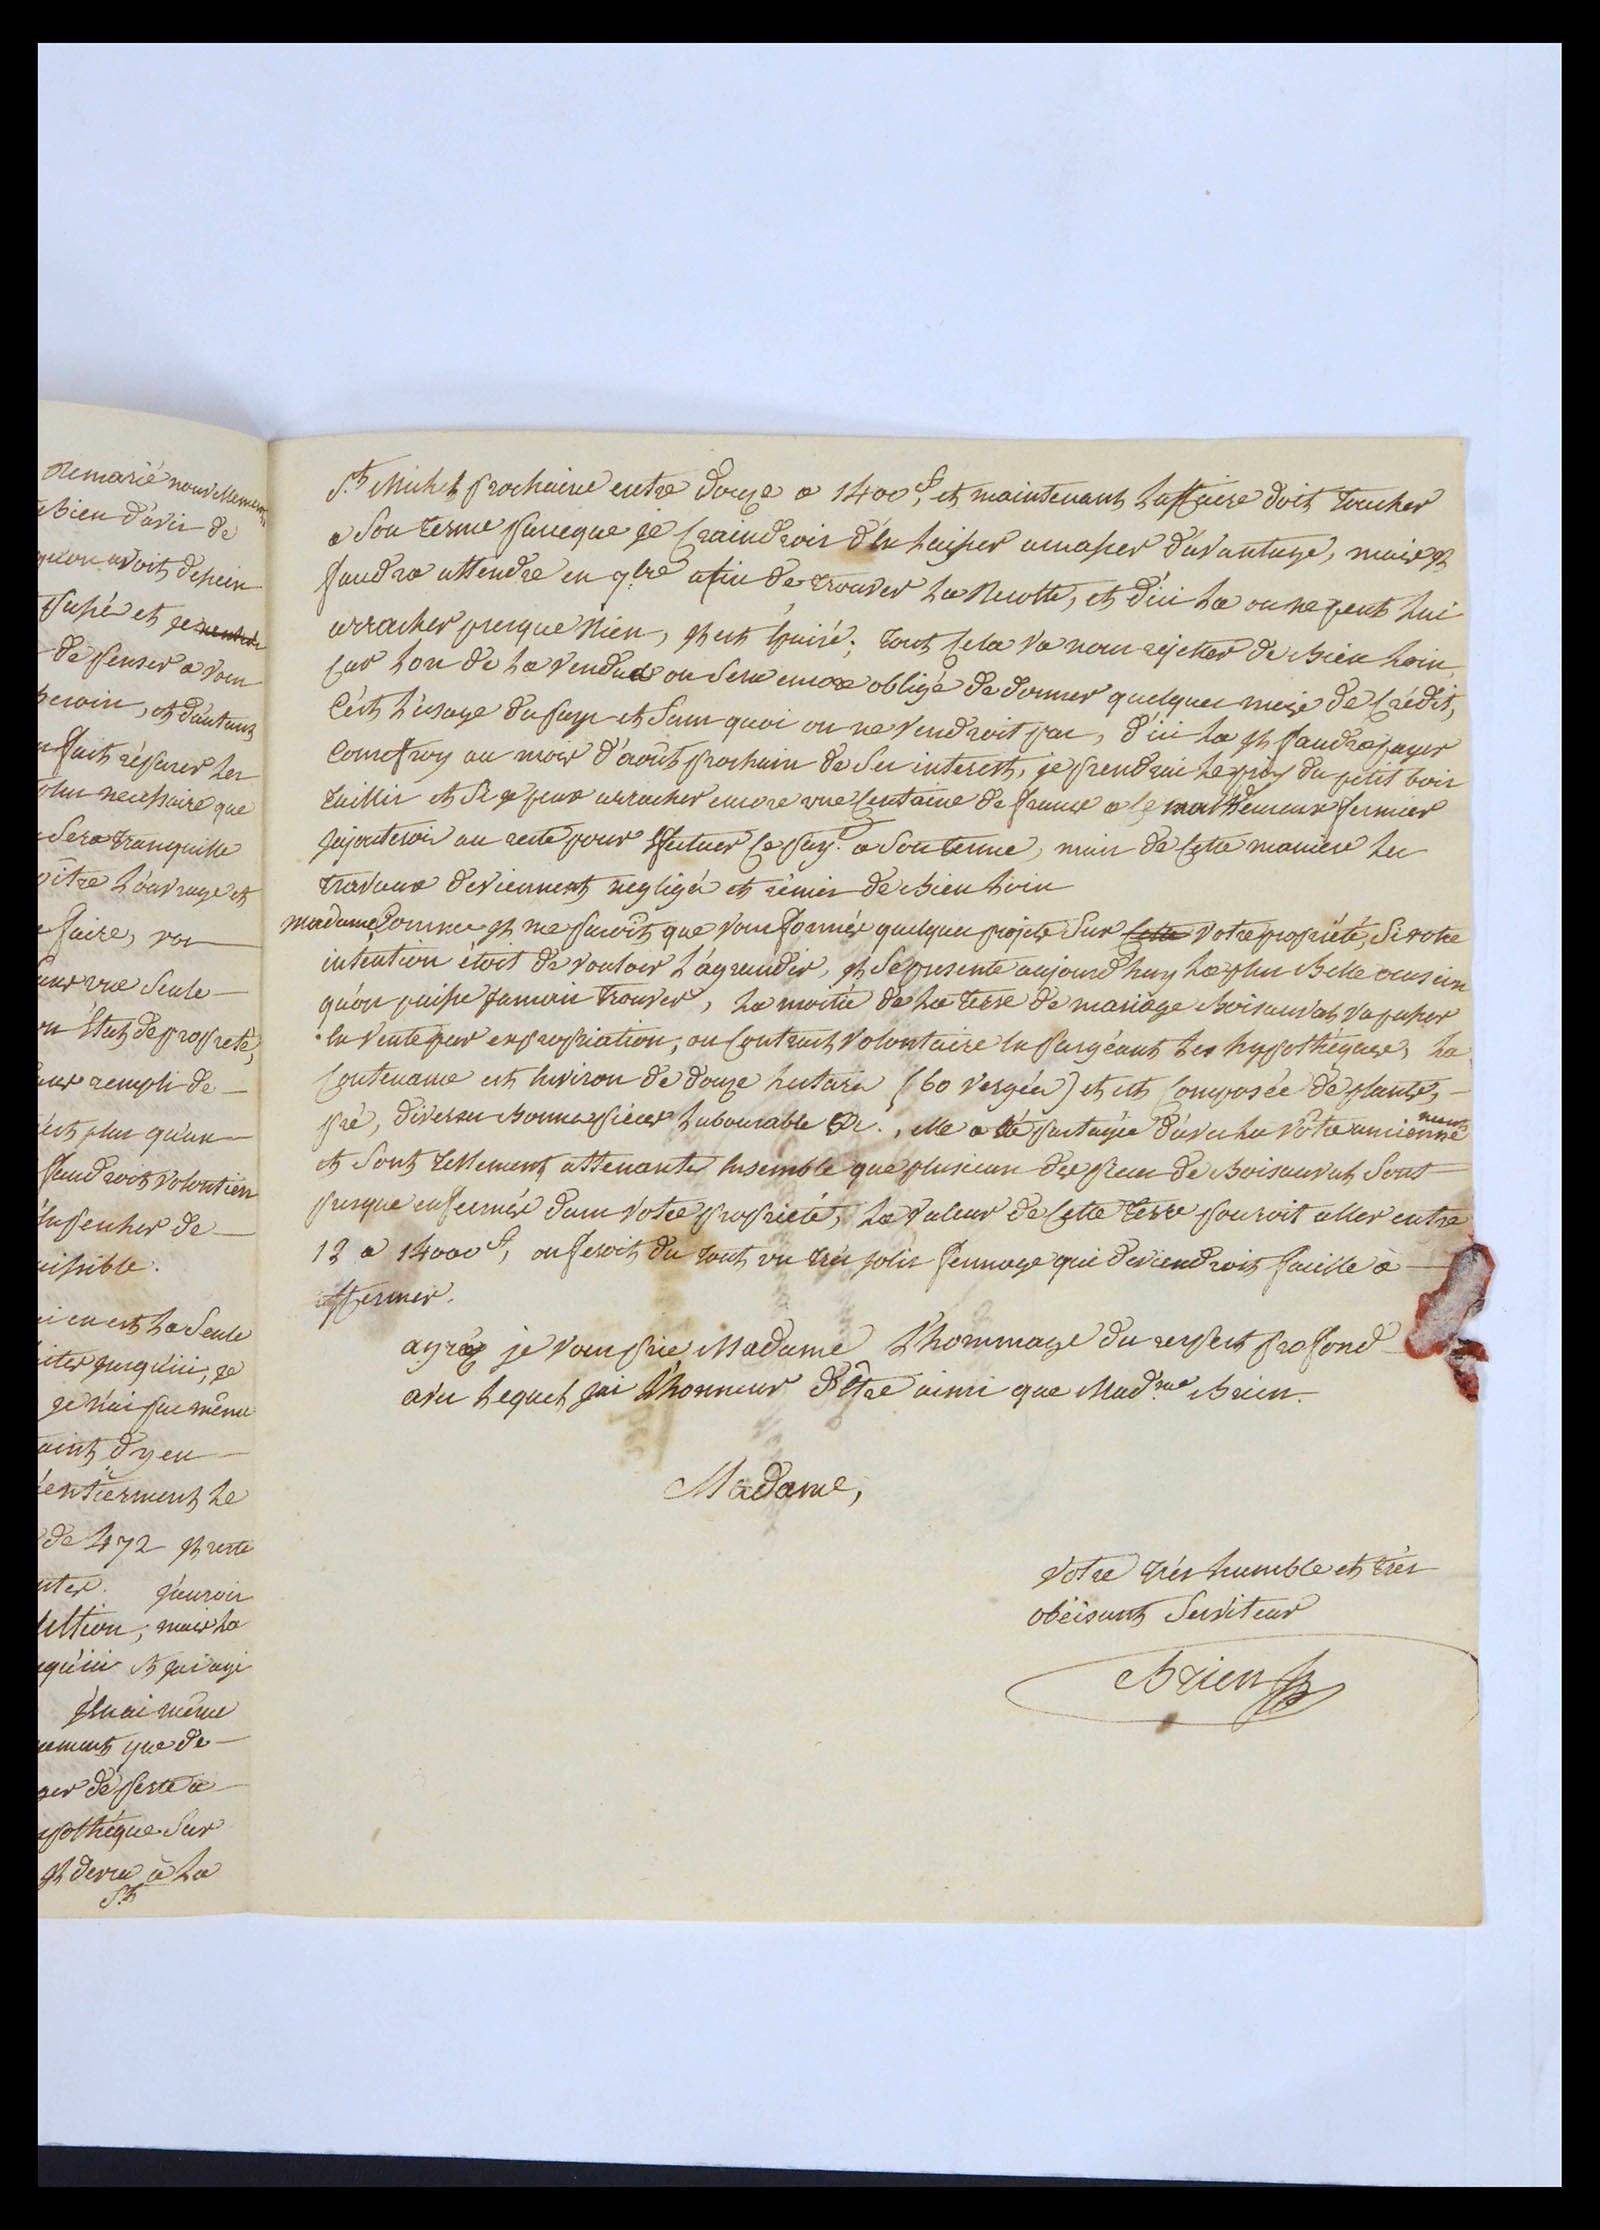 Remarié nouvellement
Bien d'avis de
qu'on avoit depein
et je
de penser a vous
besoin, et d'autant
fait réparer les
plus necessaire que
Sera tranquille
l'ouvrage et
faire, vos
une Seule
Etat de propreté,
rempli de
plus qu'un
faudroit volontiers
empecher de
nuisible.
en est la Seule
jusqu'ici, je
je n'ai pas même
d'y en
entierement le
de 472 il reste
j'aurois
mais la
et j'ai agi
j'en ai même
que de
de perte a
hypothéque Sur
il devra à la
St.
St. Michel prochaine entre douze a 1400 f, et maintenant l'affaire doit toucher
a Son terme parceque je Craindrois d'en laisser amasser d'avantage, mais il
faudra attendre en 9bre afin de trouver la Recolte, et d'ici la on ne peut lui
arracher presque Rien, il est Epuisé; tout Cela va nous rejetter de Bien loin,
Car lors de la vendue on Sera encore obligé de donner quelques mois de Crédit,
C'est l'usage du pays et Sans quoi on ne vendroit pas, d'ici la il faudra payer
Comofroy au mois d'août prochain de Ses interests, je prendrai le prix du petit bois
taillis et Si je peux arracher encore une Centaine de francs a le malheureux fermier
j'ajouterai au reste pour Effectuer Ce pay.t a Son terme, mais de Cette manière les
travaux deviennent negligés et remis de Bien loin
Madame Comme il me paroit que vous formés quelques projets Sur Cette votre propriété, Si votre
intention étoit de vouloir l'agrandir, il Se presente aujourd'huy la plus Belle ocasion
qu'on puisse jamais trouver, la moitié de la terre de mariage Boisauvat va passer
En vente par expropriation, ou Contract volontaire En purgéant les hypothéques, la
Contenance est Environ de douze hectares (60 vergées) et est Composée de plants,
pré, diverses Bonnes pièces labourable &c., elle a été partagée d'avec la Vôtre anciennement
et Sont tellement attenantes Ensemble que plusieurs des pieces de Boisauvat Sont
presque enfermés dans votre propriété, la valeur de Cette terre pouroit aller entre
12 a 14000 f, on feroit du tout un très jolis fermage qui deviendroit faicille à
affermer.
agréez je vous prie Madame L'hommage du respect profond
avec lequel j'ai L'honneur d'être ainsi que Mad.me Brien.
Madame,
Votre très humble et très
obéisant Serviteur
Brien